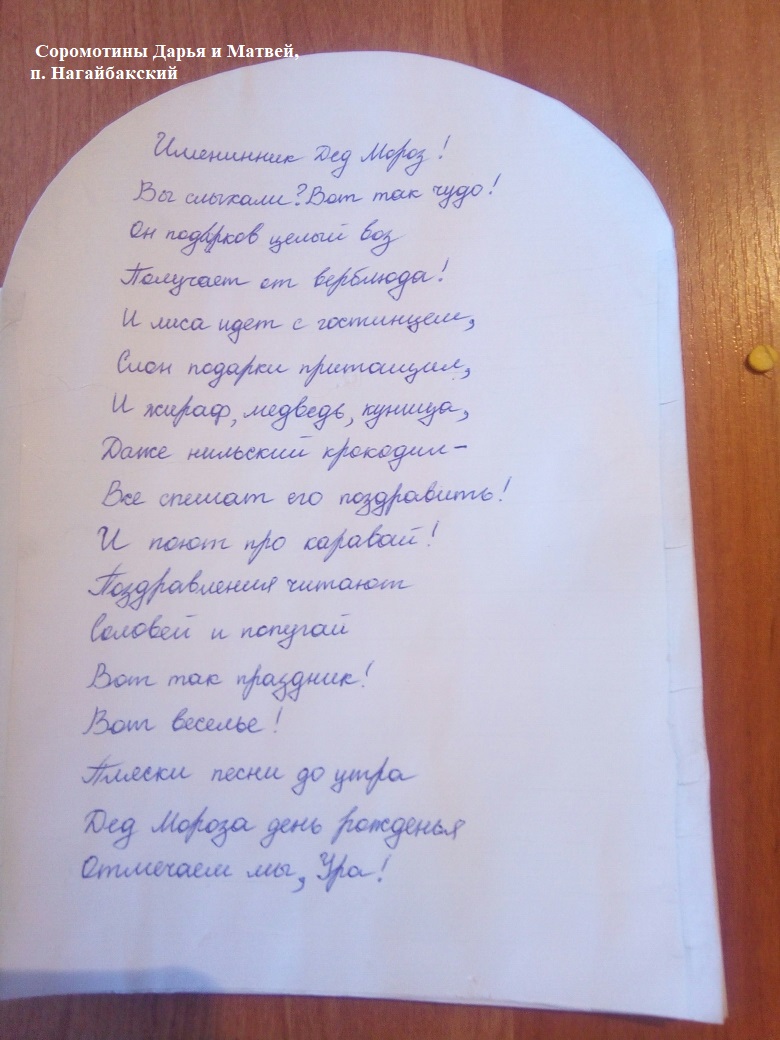 Соромотины Дарья и Матвей,
п. Нагайбакский
Именинник Дед Мороз!
Вы слыхали? Вот так чудо!
Он подарков целый воз
Получает от верблюда!
И лиса идет с гостинцем,
Слон подарки притащил,
И жираф, медведь, куница,
Даже нильский крокодил-
Все спешат его поздравить!
И поют про каравай!
Поздравления читают
Соловей и попугай
Вот так праздник!
Вот веселье!
Пляски песни до утра
Дед Мороза день рожденья
Отмечаем мы, Ура!